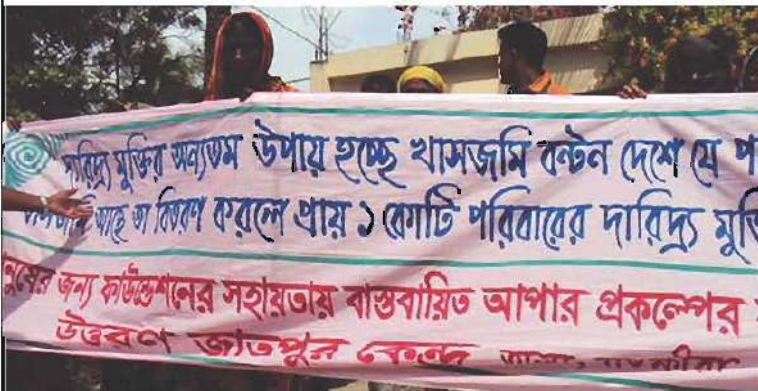 দারিদ্র্য মুক্তির অন্যতম উপায় হচ্ছে খাসজমি বন্টন দেশে যে প
আছে তা বিতরণ করলে প্রায় ১ কোটি পরিবারের দারিদ্র্য মুক্তি
জন্য ফাউন্ডেশনের সহায়তায় বাস্তবায়িত আপার প্রকল্পের
উত্তরণ জাতপুর কেন্দ্র